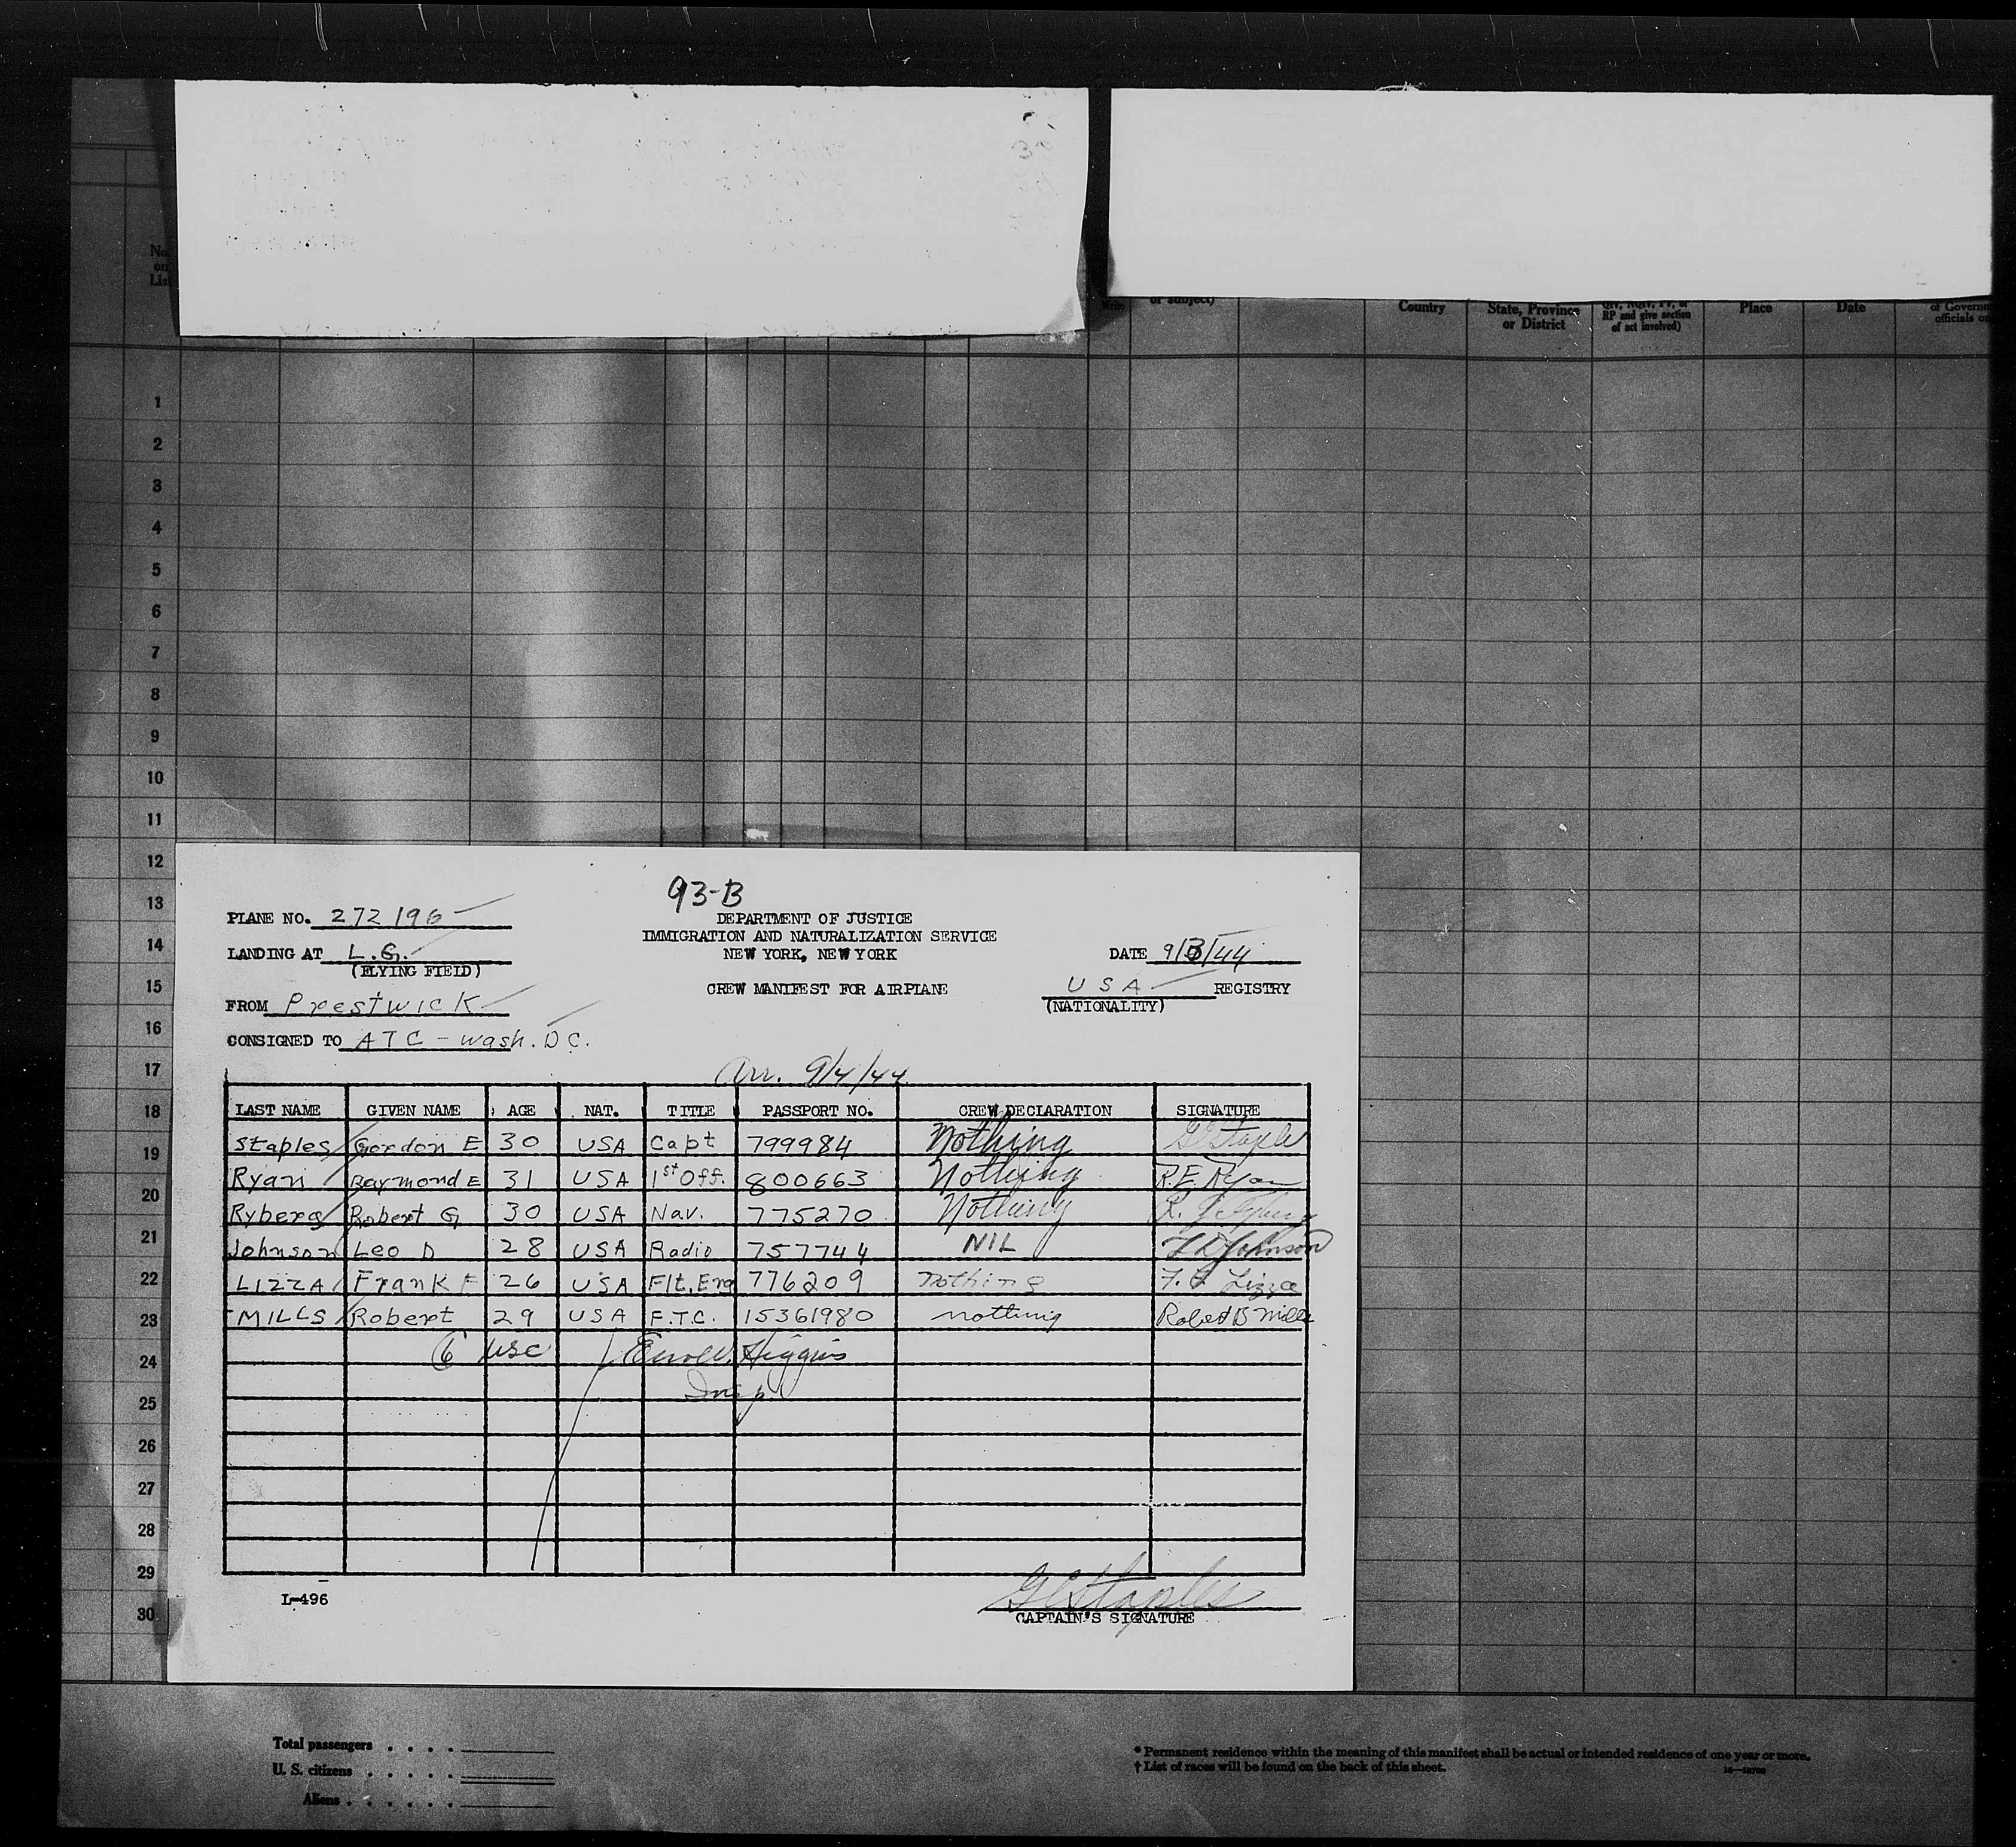 No.
on
List
or subject)
Country
State, Province
or District
QIV, NQIV, PV, or
RP and give section
of act involved)
Place
Date
of Governm
officials or
1
2
3
4
5
6
7
8
9
10
11
12
13
14
15
16
17
18
19
20
21
22
23
24
25
26
27
28
29
30
93-B
PLANE NO. 272196
DEPARTMENT OF JUSTICE
IMMIGRATION AND NATURALIZATION SERVICE
LANDING AT L.G.
NEW YORK, NEW YORK
DATE 9/3/44
(FLYING FIELD)
CREW MANIFEST FOR AIRPLANE
USA REGISTRY
(NATIONALITY)
FROM Prestwick
CONSIGNED TO ATC - Wash. D.C.
Arr. 9/4/44
LAST NAME GIVEN NAME AGE NAT. TITLE PASSPORT NO. CREW DECLARATION SIGNATURE
Staples Gordon E 30 USA Capt 799984 Nothing G E Staples
Ryan Raymond E 31 USA 1st Off. 800663 Nothing R.E. Ryan
Ryberg Robert G 30 USA Nav. 775270 Nothing R. G. Ryberg
Johnson Leo D 28 USA Radio 757744 NIL L D Johnson
LIZZA Frank F 26 USA Flt. Eng 776209 nothing F. F. Lizza
MILLS Robert 29 USA F.T.C. 15361980 nothing Robert B Mills
6 USC Higgins
Insp.
L-496
G E Staples
CAPTAIN'S SIGNATURE
Total passengers . . . .
U. S. citizens . . . . .
Aliens . . . . . .
* Permanent residence within the meaning of this manifest shall be actual or intended residence of one year or more.
† List of races will be found on the back of this sheet.